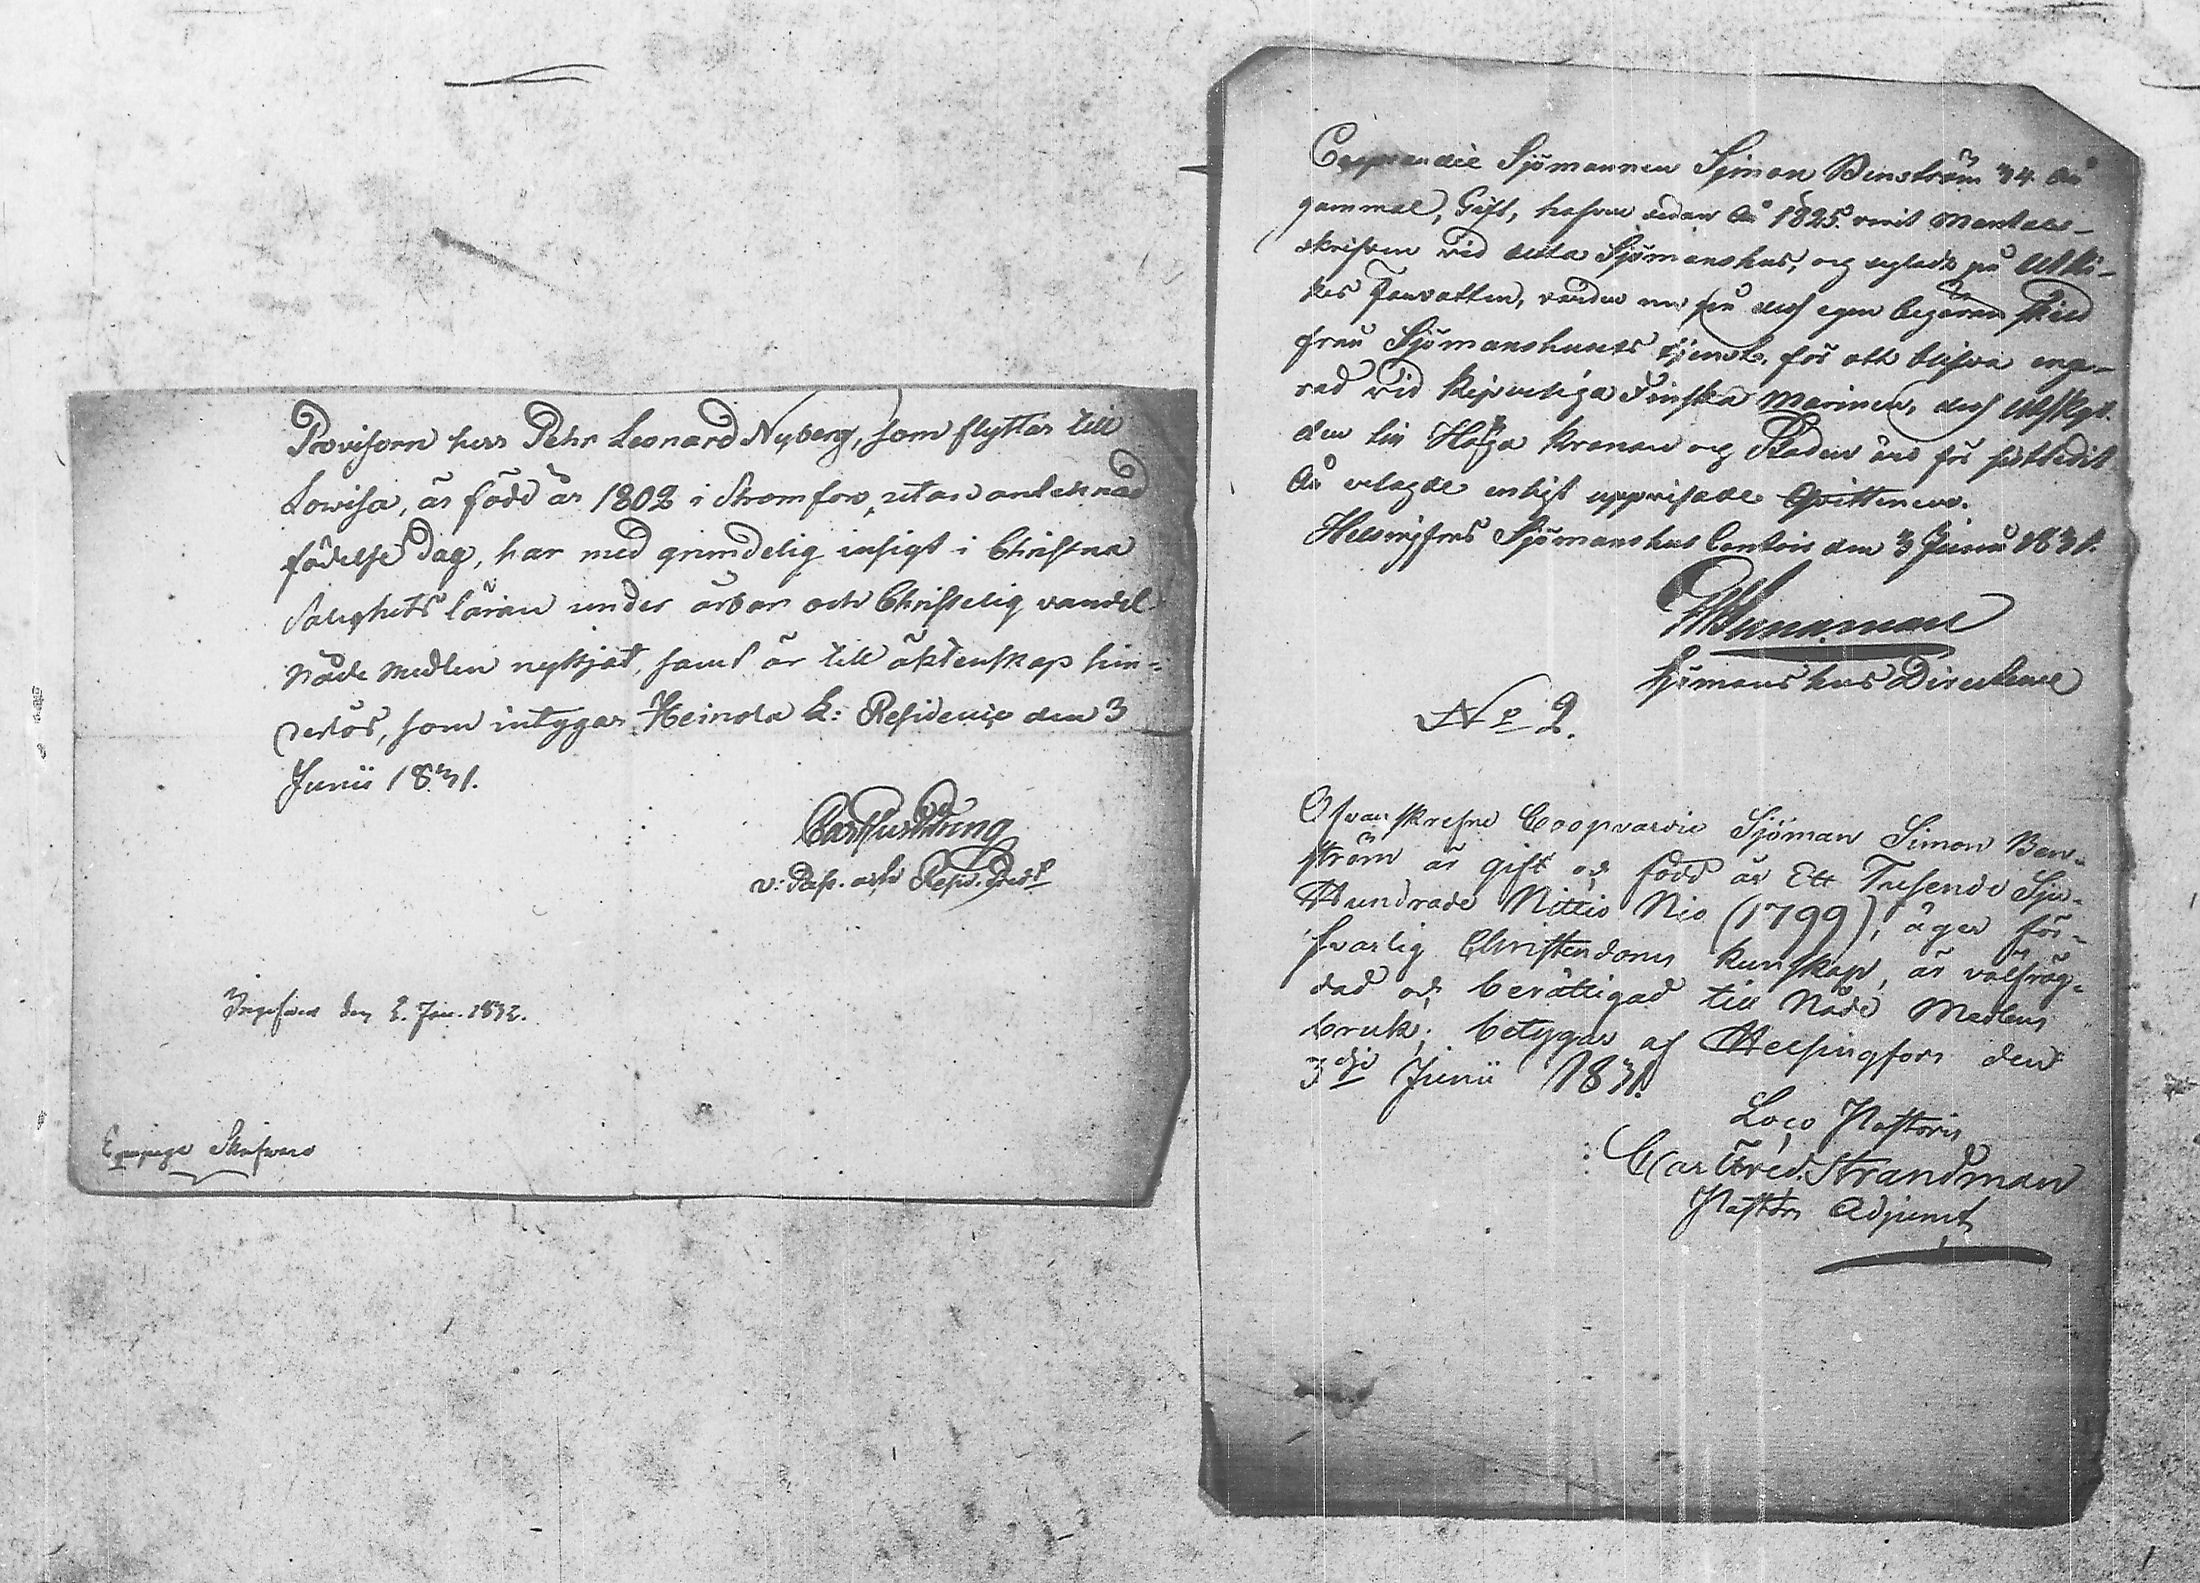 Provisorn herr Pehr Leonard Nyberg, som flyttar till
Lovisa, är född år 1802 i Stromfors, utan antecknad
födelse dag, har med grundelig insigt i Christna
Salighets läran under ärbar och Christelig vandel
Nåde medlen nyttjat, samt är till äktenskap hin-
derlös, som intygar Heinola K: Residence den 3
Junii 1831.
v: Past. Resid. Pred.
den 2. Jan. 1832.
Equipage
Coopvardie Sjömannen Simon Wenström 34 år
gammal, Gift, hafver sedan år 1825 varit Mantals-
skrifven vid detta Sjömanshus, og segladt på Utri-
kes Farvatten, varder nu på dess egen begäran skild
från Sjömanshusets tjenst, för att blifva enga-
rad vid Kejserliga Finska Marinen, dess Utskyl-
der till Höga Kronan og Staden äro för sistledit
år erlagde enligt uppvisade Qvittencer.
Helsingfors Sjömanshus Contoir den 3 Junii 1831.
Sjömanshus Directeur
No 2.
Ofvanskrefne Coopvardie Sjöman Simon Ven-
ström är gift och född år Ett Tusende Sju-
Hundrade Nittio Nio (1799); äger för-
svarlig Christendoms kunskap, är välfräg-
dad och berättigad till Nåde Medlens
bruk; betygas af Helsingfors den
3dje Junii 1831.
Loco Pastoris
Carl Fred. Strandman
Pastors Adjunct